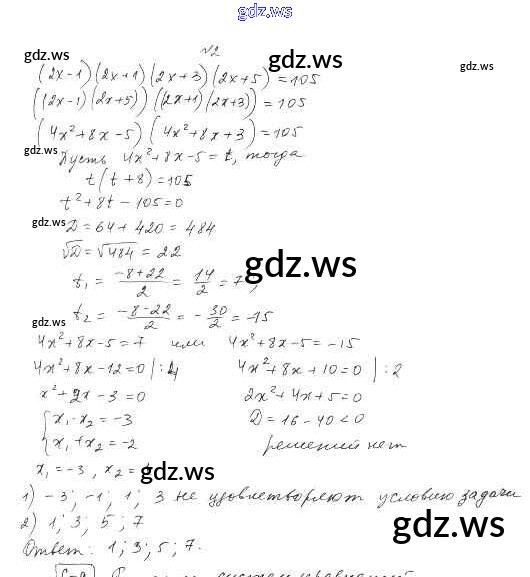 gdz.ws
№2
gdz.ws
gdz.ws
gdz.ws
(2x-1)(2x+1)(2x+3)(2x+5)=105
((2x-1)(2x+5))((2x+1)(2x+3))=105
(4x²+8x-5)(4x²+8x+3)=105
gdz.ws
Пусть 4x²+8x-5=t, тогда
t(t+8)=105
t²+8t-105=0
gdz.ws
D=64+420=484
√D=√484=22
gdz.ws
t₁=(-8+22)/2=14/2=7,
t₂=(-8-22)/2=-30/2=-15
gdz.ws
4x²+8x-5=7 или 4x²+8x-5=-15
4x²+8x-12=0 |:4 4x²+8x+10=0 |:2
x²+2x-3=0 2x²+4x+5=0
{x₁·x₂=-3 D=16-40<0
x₁+x₂=-2 решений нет
x₁=-3, x₂=
gdz.ws
1) -3; -1; 1; 3 не удовлетворяют условию задачи
2) 1; 3; 5; 7
gdz.ws
Ответ: 1; 3; 5; 7.